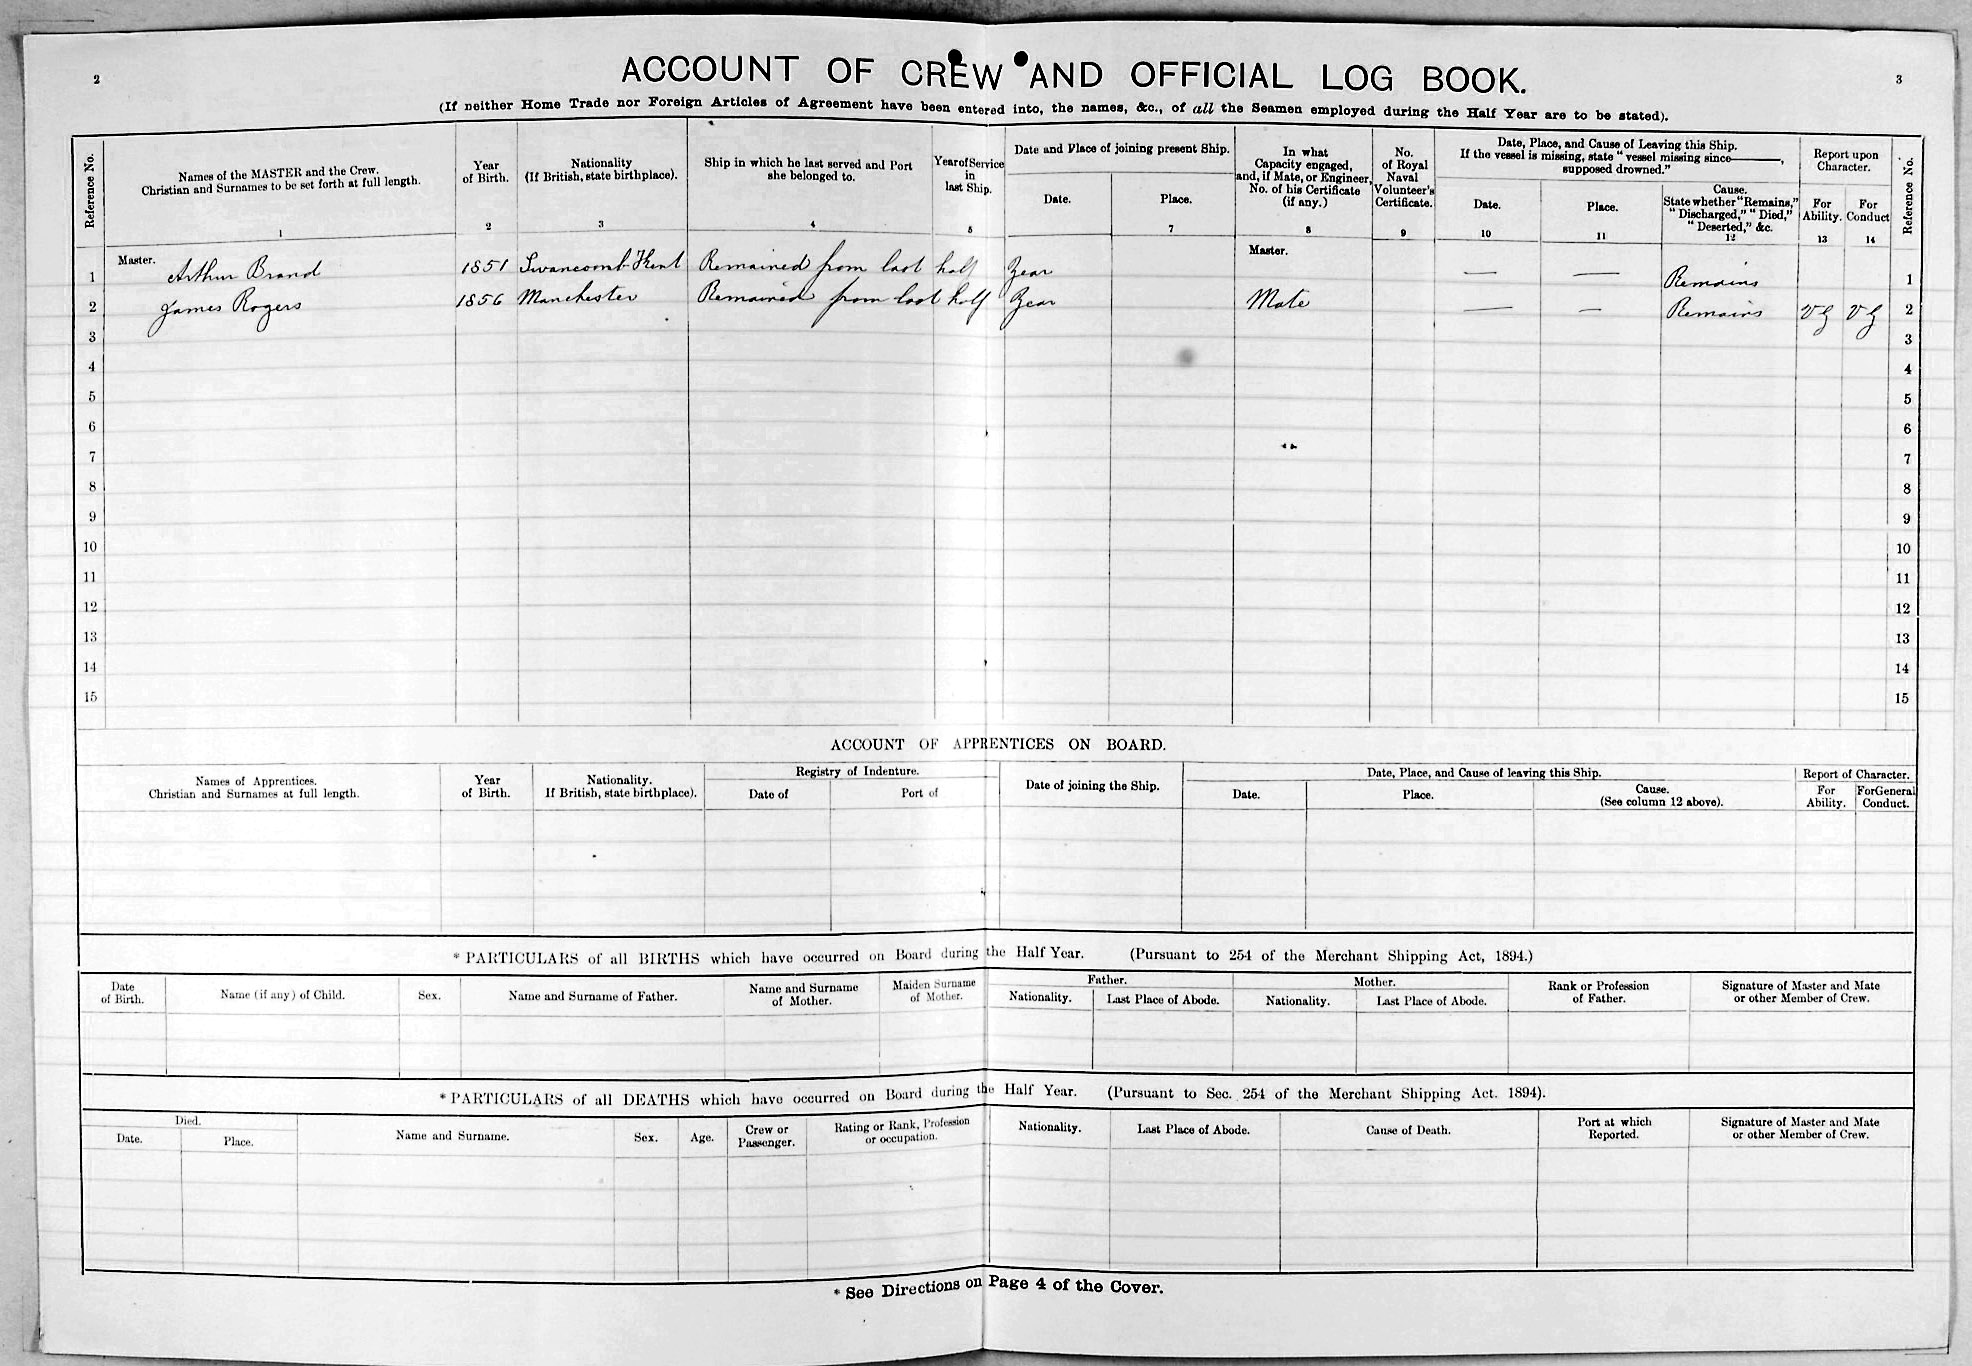 2
ACCOUNT OF CREW AND OFFICIAL LOG BOOK.
3
(If neither Home Trade nor Foreign Articles of Agreement have been entered into, the names, &c., of all the Seamen employed during the Half Year are to be stated).
Reference No.
Names of the MASTER and the Crew.
Christian and Surnames to be set forth at full length.
1
Year
of Birth.
2
Nationality
(If British, state birthplace).
3
Ship in which he last served and Port
she belonged to.
4
Year of Service
in
last Ship.
5
Date and Place of joining present Ship.
Date.
Place.
7
In what
Capacity engaged,
and, if Mate, or Engineer,
No. of his Certificate
(if any.)
8
No.
of Royal
Naval
Volunteer's
Certificate.
9
Date, Place, and Cause of Leaving this Ship.
If the vessel is missing, state "vessel missing since——,
supposed drowned."
Date.
10
Place.
11
Cause.
State whether "Remains,"
"Discharged," "Died,"
"Deserted," &c.
12
Report upon
Character.
For
Ability.
13
For
Conduct
14
Reference No.
Master. Master.
1 Arthur Brand 1851 Swancomb Kent Remained from last half Year — — Remains 1
2 James Rogers 1856 Manchester Remained from last half Year Mate — — Remains VG VG 2
3 3
4 4
5 5
6 6
7 7
8 8
9 9
10 10
11 11
12 12
13 13
14 14
15 15
ACCOUNT OF APPRENTICES ON BOARD.
Names of Apprentices.
Christian and Surnames at full length.
Year
of Birth.
Nationality.
If British, state birthplace).
Registry of Indenture.
Date of
Port of
Date of joining the Ship.
Date, Place, and Cause of leaving this Ship.
Date.
Place.
Cause.
(See column 12 above).
Report of Character.
For
Ability.
For General
Conduct.
* PARTICULARS of all BIRTHS which have occurred on Board during the Half Year. (Pursuant to 254 of the Merchant Shipping Act, 1894.)
Date
of Birth.
Name (if any) of Child.
Sex.
Name and Surname of Father.
Name and Surname
of Mother.
Maiden Surname
of Mother.
Father.
Nationality.
Last Place of Abode.
Mother.
Nationality.
Last Place of Abode.
Rank or Profession
of Father.
Signature of Master and Mate
or other Member of Crew.
* PARTICULARS of all DEATHS which have occurred on Board during the Half Year. (Pursuant to Sec. 254 of the Merchant Shipping Act. 1894).
Died.
Date.
Place.
Name and Surname.
Sex.
Age.
Crew or
Passenger.
Rating or Rank, Profession
or occupation.
Nationality.
Last Place of Abode.
Cause of Death.
Port at which
Reported.
Signature of Master and Mate
or other Member of Crew.
* See Directions on Page 4 of the Cover.